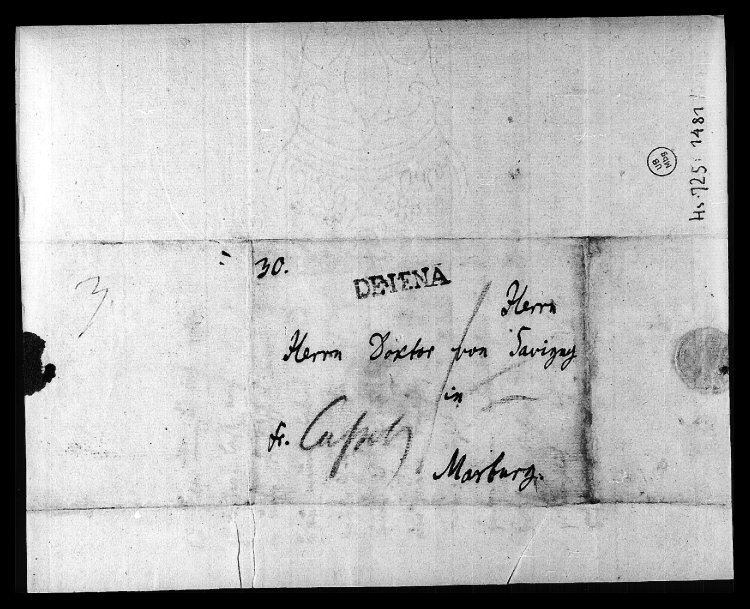 Hs. 725: 1481
UB
Mbg
3.
30.
DE IENA
Herrn
Herrn Doktor von Savigny
in
fr. Cassel
Marburg.